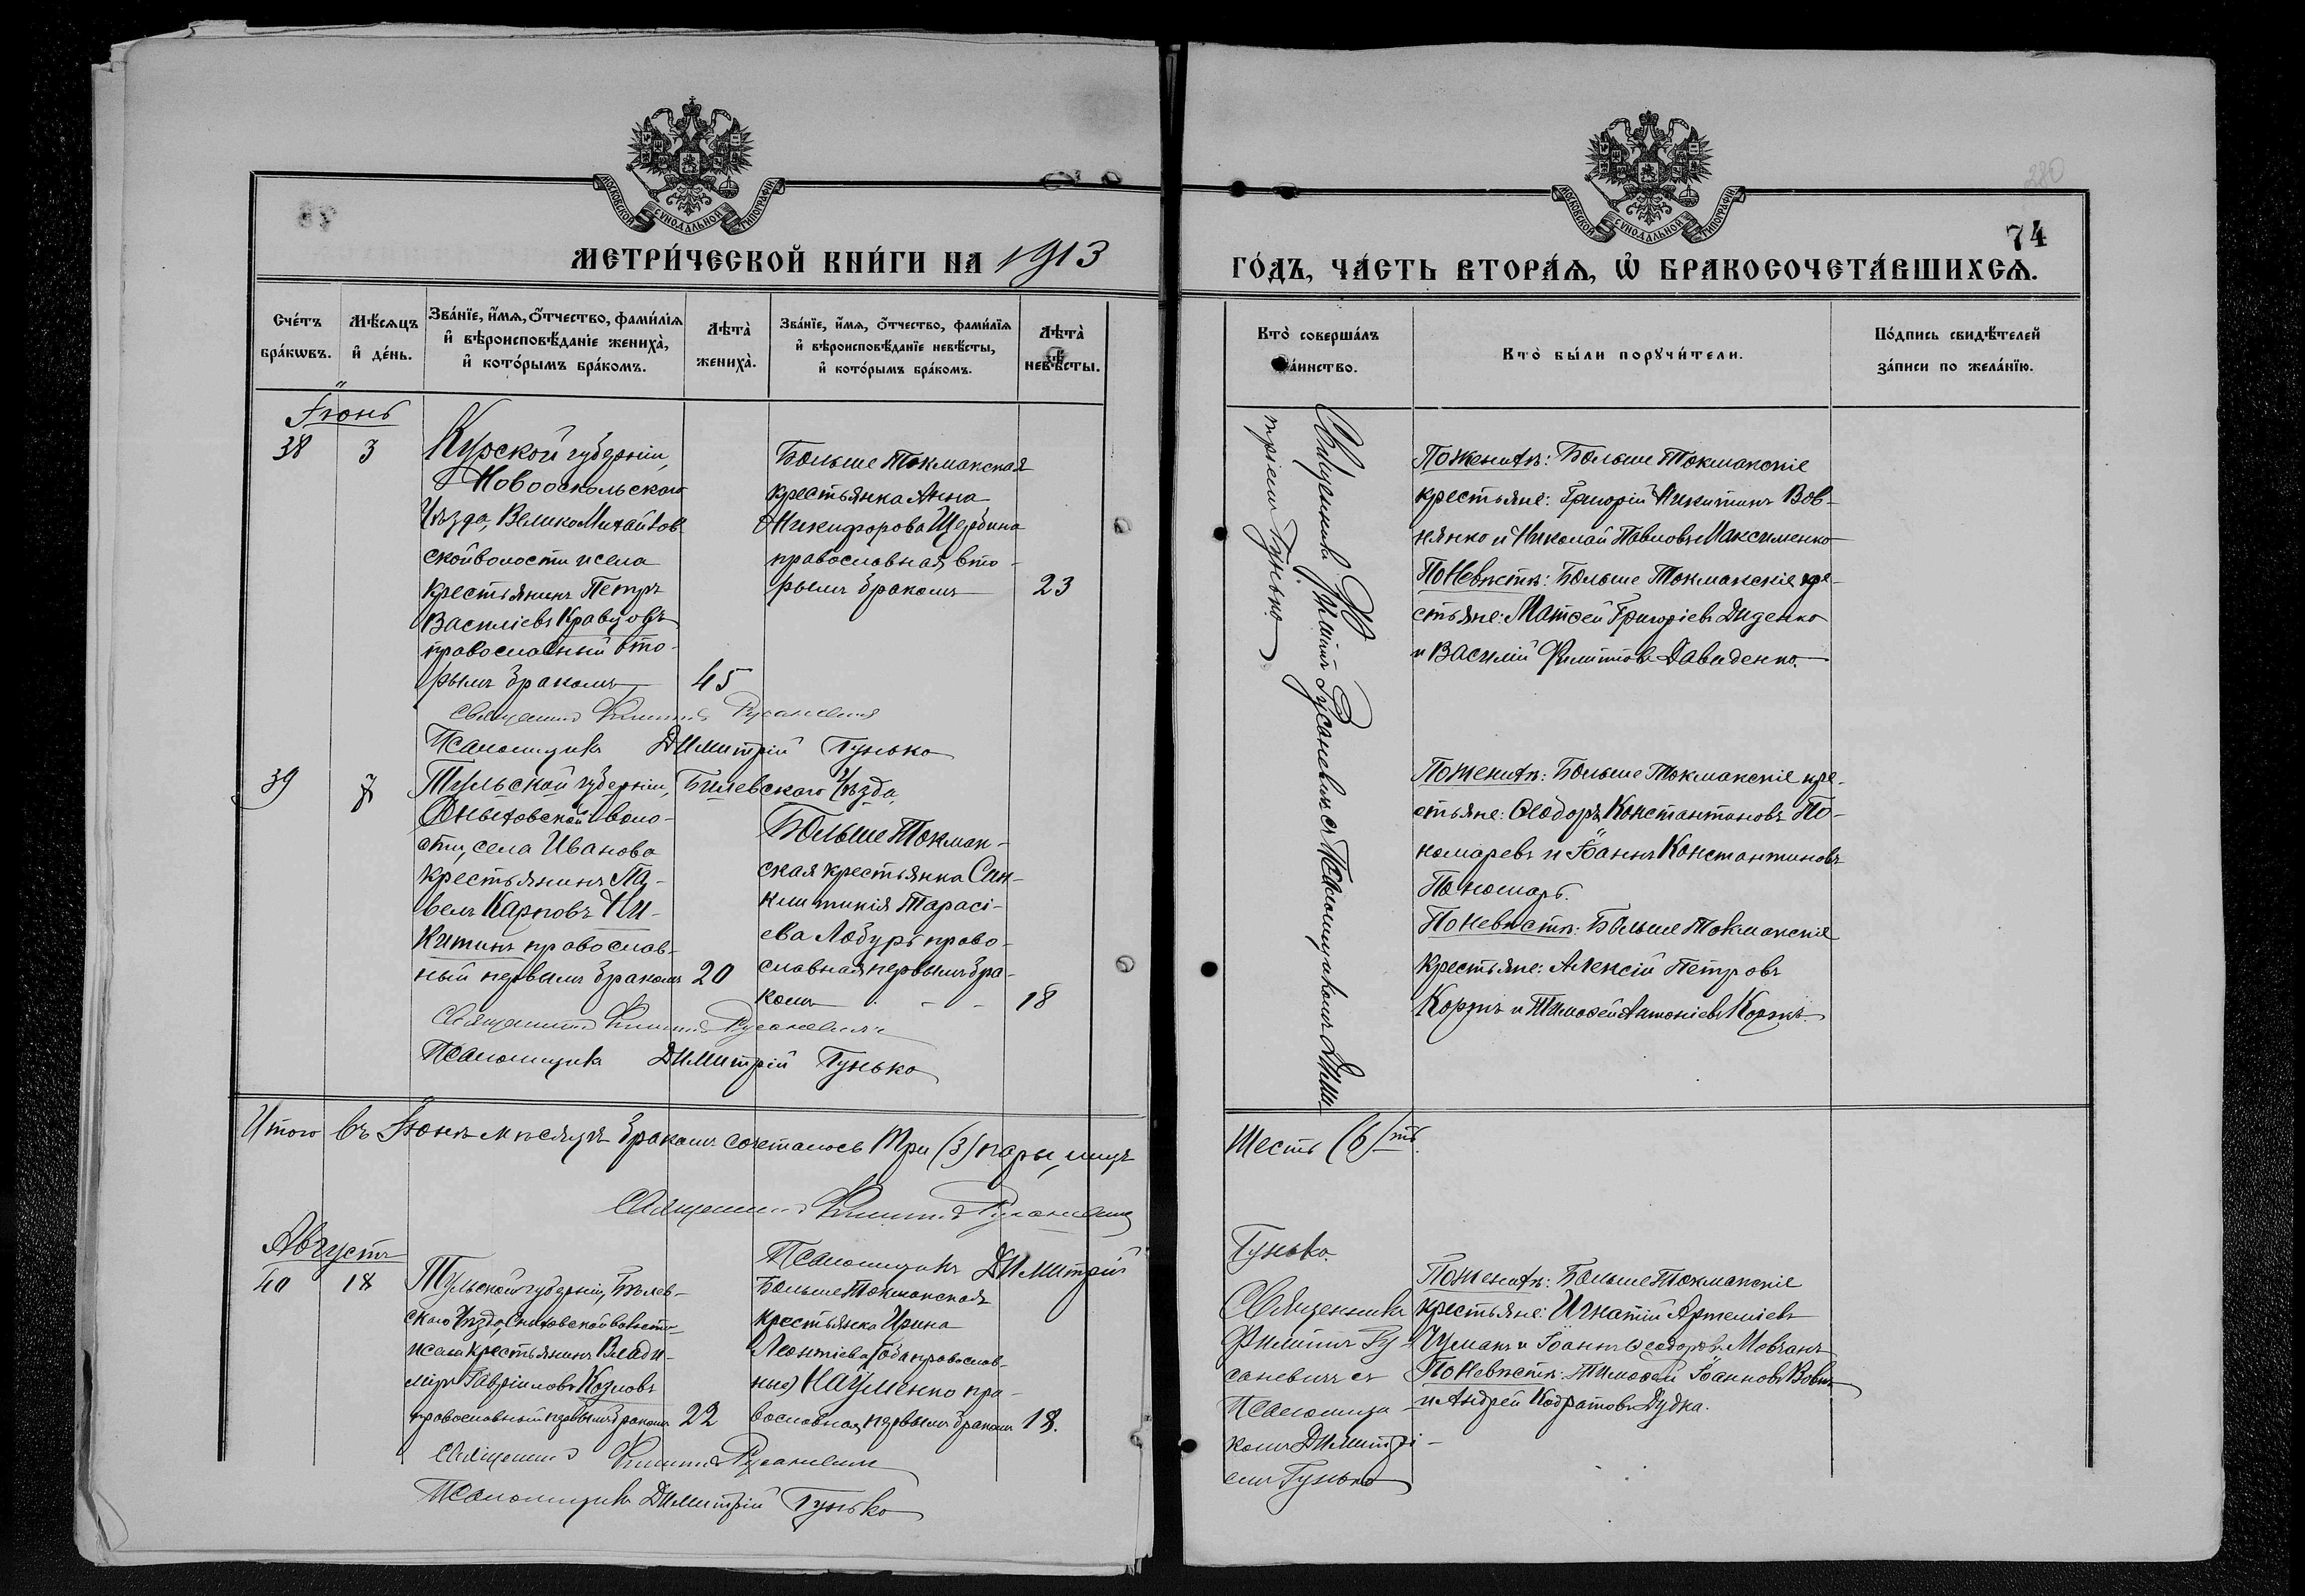 МОСКОВСКОЙ СУНОДАЛЬНОЙ ТИПОГРАФІИ
МЕТРИ́ЧЕСКОЙ КНИ́ГИ НА 1913
Сче́тъ бра́кѡвъ.
Мѣ́сяцъ и҆ де́нь.
Зва́нїе, и҆́мѧ, ѻ҆́тчество, фами́лїѧ
и҆ вѣроисповѣ́данїе жениха̀,
и҆ кото́рымъ бра́комъ.
Лѣта̀
жениха̀.
Зва́нїе, и҆́мѧ, ѻ҆́тчество, фами́лїѧ
и҆ вѣроисповѣ́данїе невѣ́сты,
и҆ кото́рымъ бра́комъ.
Лѣта̀
невѣ́сты.
Іюнь
38
3
Курской губерніи,
Новооскольскаго
Уѣзда, ВеликоМихайлов
ской волости и села
крестьянинъ Петръ
Василіевъ Кравцовъ
православный вто-
рымъ бракомъ
45
Больше Токмакская
крестьянка Анна
Никифорова Щербина
православная вто-
рымъ бракомъ
23
Священникъ Филиппъ Русаневичъ
Псаломщикъ Димитрій Гунько
39
7
Тульской губерніи, Билевскаго Уѣзда,
волo-
сти, села Иванова
крестьянинъ Па-
велъ Карповъ Ни-
китинъ православ-
ный первымъ бракомъ
20
Больше Токмак-
ская крестьянка Син-
клитикія Тарасі-
ева Лобурь право-
славная первымъ бра-
комъ
18
Священникъ Филиппъ Русаневичъ
Псаломщикъ Димитрій Гунько
Итого въ Іюнѣ мѣсяцѣ бракомъ сочеталось Три (3) пары, лицъ
Священникъ Филиппъ Русаневичъ
Псаломщикъ Димитрій
Августъ
40
18
Тульской губерніи, Бѣлев-
скаго Уѣзда, Сныховской волости
и села крестьянинъ Влади-
міръ Гавріиловъ Козловъ
православный первымъ бракомъ
22
Больше Токмакская
крестьянка Ирина
Леонтіева (оба православ-
ные) Науменко пра-
вославная первымъ бракомъ
18.
Священникъ Филиппъ Русаневичъ
Псаломщикъ Димитрій Гунько
280
74
МОСКОВСКОЙ СУНОДАЛЬНОЙ ТИПОГРАФІИ
ГО́ДЪ, ЧА́СТЬ ВТОРА́Ѧ, Ѡ҆ БРАКОСОЧЕТА́ВШИХСѦ.
Кто̀ соверша́лъ
та́инство.
Кто̀ бы́ли порꙋчи́тели.
По́дпись свидѣ́телей
за́писи по жела́нїю.
Священникъ Филиппъ Русаневичъ съ Псаломщикомъ Дими-
тріемъ Гунько
По женихѣ: Больше Токмакскіе
крестьяне: Григорій Никитинъ Вов-
нянко и Николай Павловъ Максименко
По невѣстѣ: Больше Токмакскіе кре-
стьяне: Матѳей Григоріевъ Диденко
и Василій Филипповъ Давиденко.
По женихѣ: Больше Токмакскіе кре-
стьяне: Ѳеодоръ Константиновъ По-
номаревъ и Іоаннъ Константиновъ
Пономарь.
По невѣстѣ: Больше Токмакскіе
крестьяне: Алексій Петровъ
Коржъ и Тимоѳей Антоніевъ Коржъ.
Шесть (6)ть.
Гунько.
Священникъ
Филиппъ Ру-
саневичъ съ
Псаломщи-
комъ Димитрі-
емъ Гунько
По женихѣ: Больше Токмакскіе
крестьяне: Игнатій Артеміевъ
Чумакъ и Іоаннъ Ѳеодоровъ Мовчанъ
По невѣстѣ: Тимоѳей Іоанновъ Вовкъ
и Андрей Кодратовъ Дудка.